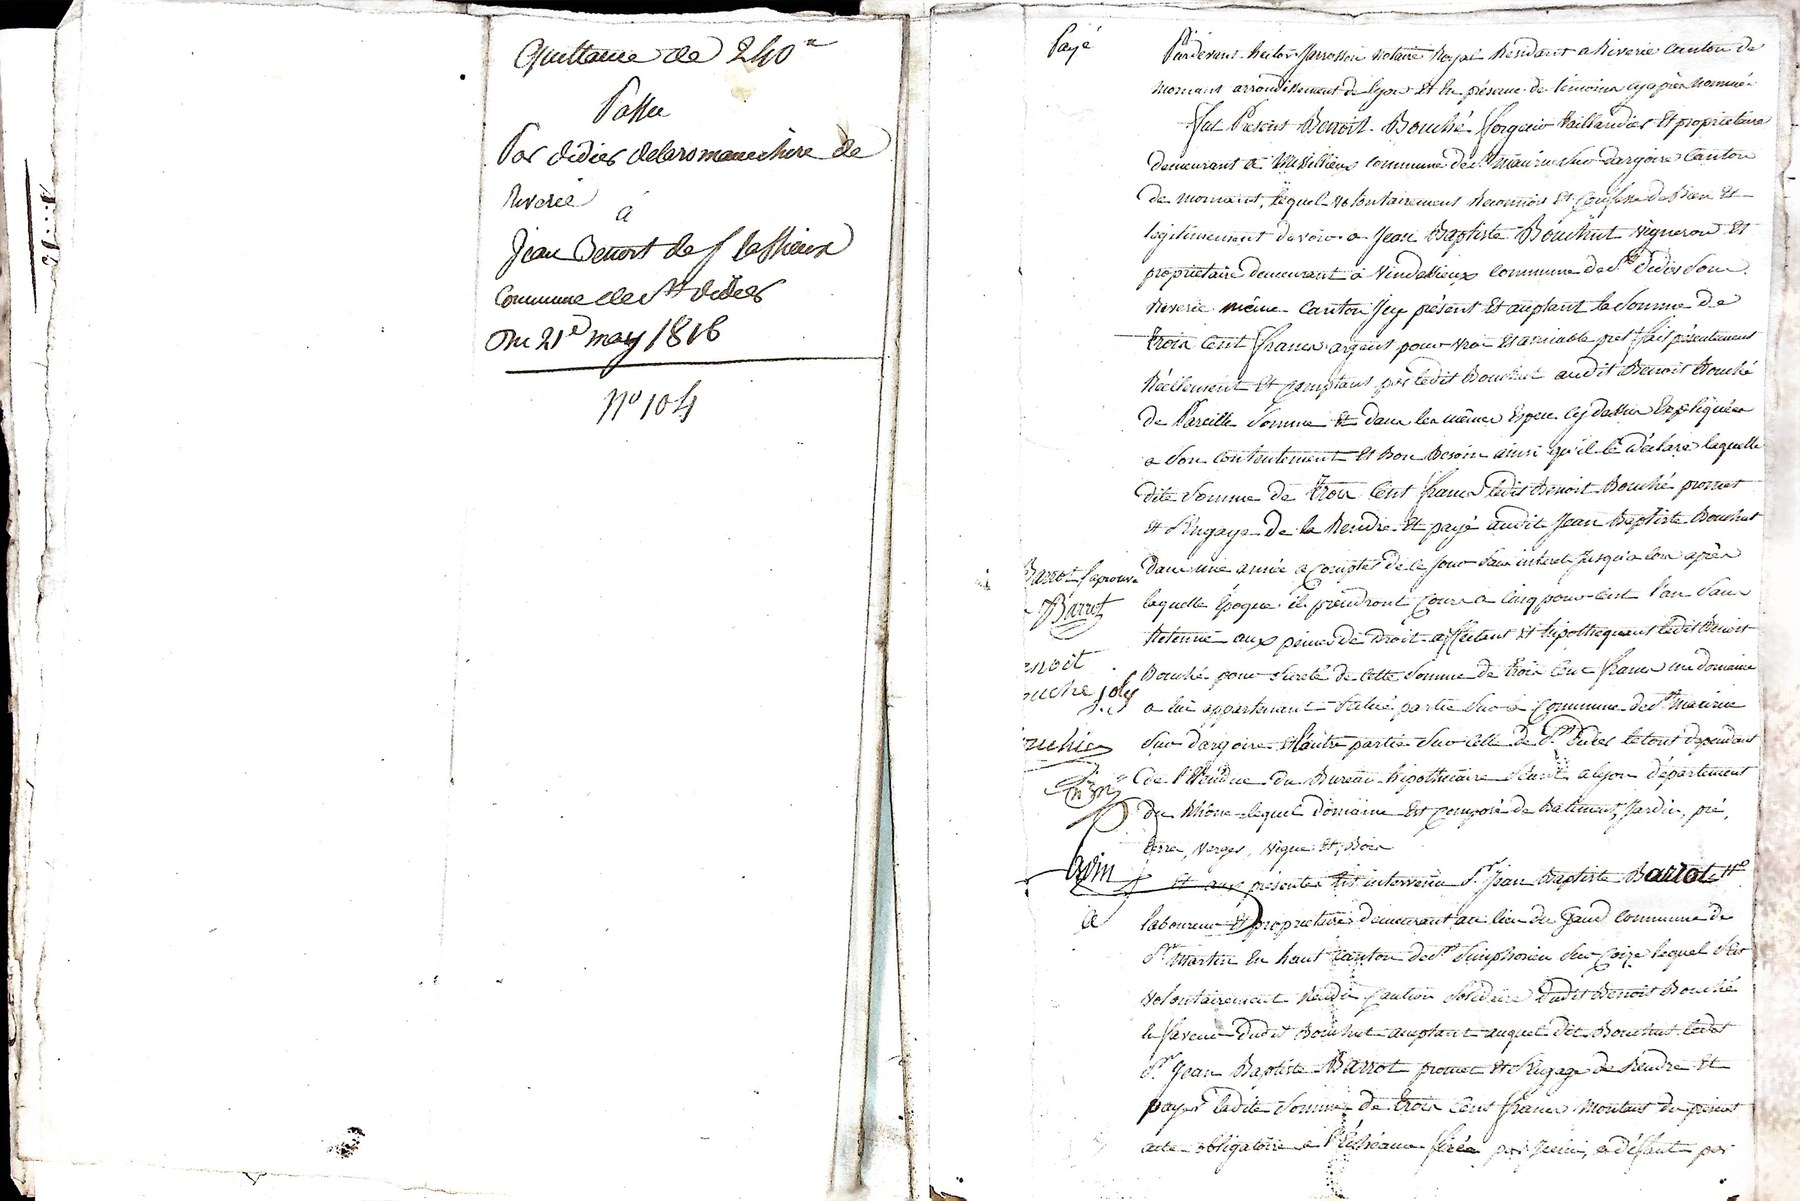 Quittance de 240 #
Passée
Par didier delaromanechere de
riverie
á
Jean Benoit de
commune de St didier
Du 21e may 1816
No 104
Payé
Pardevant hector notaire Royal Résidant a Riverie canton de
mornant arrondissement de lyon Et En présence de témoins cy après nommés
fut Présent Benoit Bouché forgeur taillandier Et proprietaire
demeurant a commune de St maurice Sur dargoire Canton
de mornant, lequel volontairement Reconnoit Et Confesse de Bien Et
legitimement devoir a Jean Baptiste Bouchut vigneron Et
propriétaire demeurant à commune de St Didier Sous
riverie même Canton Icy présent Et acceptant la Somme de
trois Cent francs argent pour vrai Et amiable pret fait présentement
Réellement Et comptant par ledit Bouchut audit Benoit Bouché
de Pareille Somme Et dans les mêmes Espece cy dessus Expliquées
a Son Contentement Et Bon Besoin ainsi qu'il le déclare laquelle
dite Somme de trois Cent francs ledit Benoit Bouché promet
Et S'Engage de la Rendre Et payé audit Jean Baptiste Bouchut
dans une année a compter de ce Jour Sans intérêt Jusqu'a lors après
laquelle Epoque il prendront Cours a Cinq pour Cent l'an Sans
Retenue aux peines de Droit affectant Et hipothequant ledit Benoit
Bouché pour Sureté de Cette Somme de trois Cent francs un domaine
a lui appartenant Situé partie Sur la Commune de St maurice
Sur dargoire Et l'autre partie Sur Celle de St Didier le tout dependant
de l'Etendue du Bureau hipothécaire Séant a lyon département
du Rhône lequel domaine Est Composé de Batiment, Jardin, pré,
terre, verger, vigne Et, Bois
Et aux présentes Est intervenu Sr Jean Baptiste Barrot
laboureur Et proprietaire demeurant au lieu du commune de
St martin En haut Canton de St Simphorien Sur Coize lequel S'Est
volontairement Rendu Caution Solidaire dudit Benoit Bouché
En faveur dudit Bouchut acceptant auquel dit Bouchut ledit
Sr Jean Baptiste Barrot promet Et S'Engage de Rendre Et
payer ladite Somme de trois Cent francs Montant du présent
acte obligatoire a l'Echéance fixée par Icelui, a défaut par
Barrot japrouve
Barrot
enoit
ouche joly